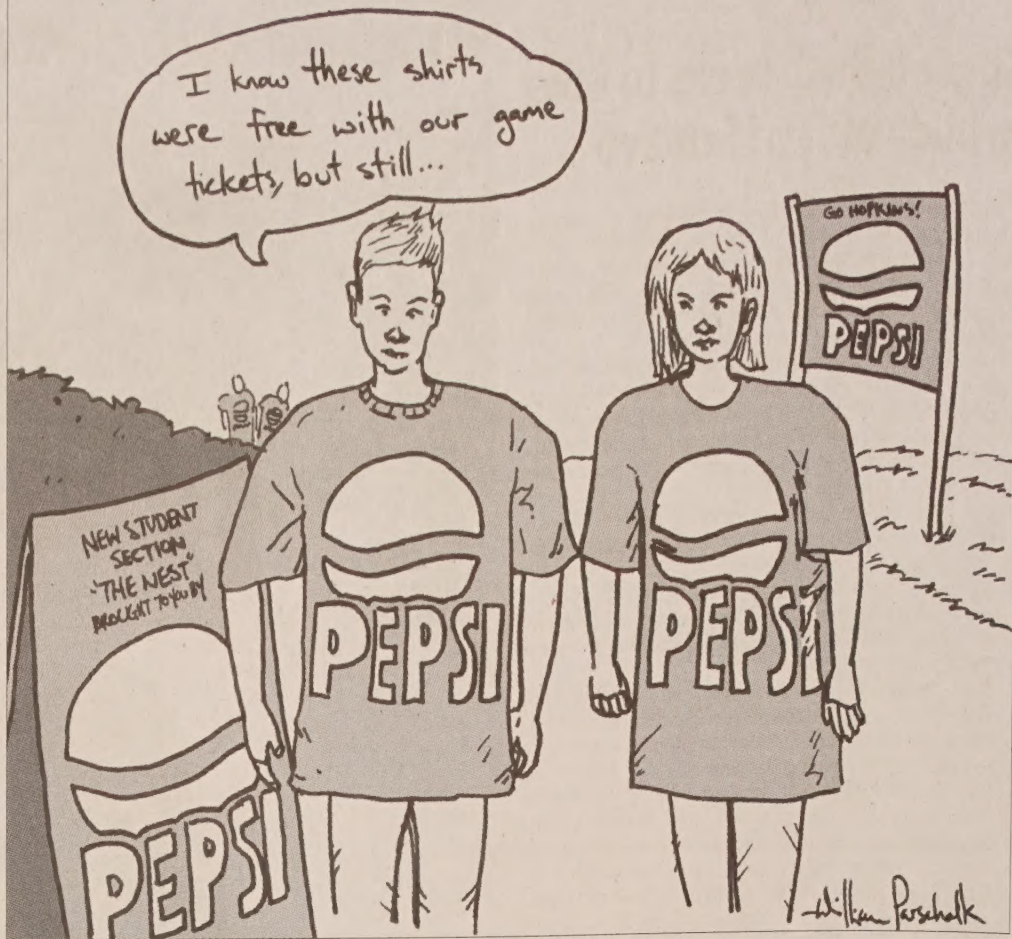 I know these shirts
were free with our game
tickets, but still...
GO HOPKINS!
PEPSI
NEW STUDENT
SECTION
"THE NEST"
BROUGHT TO YOU BY
PEPSI
PEPSI
PEPSI
William Parschalk